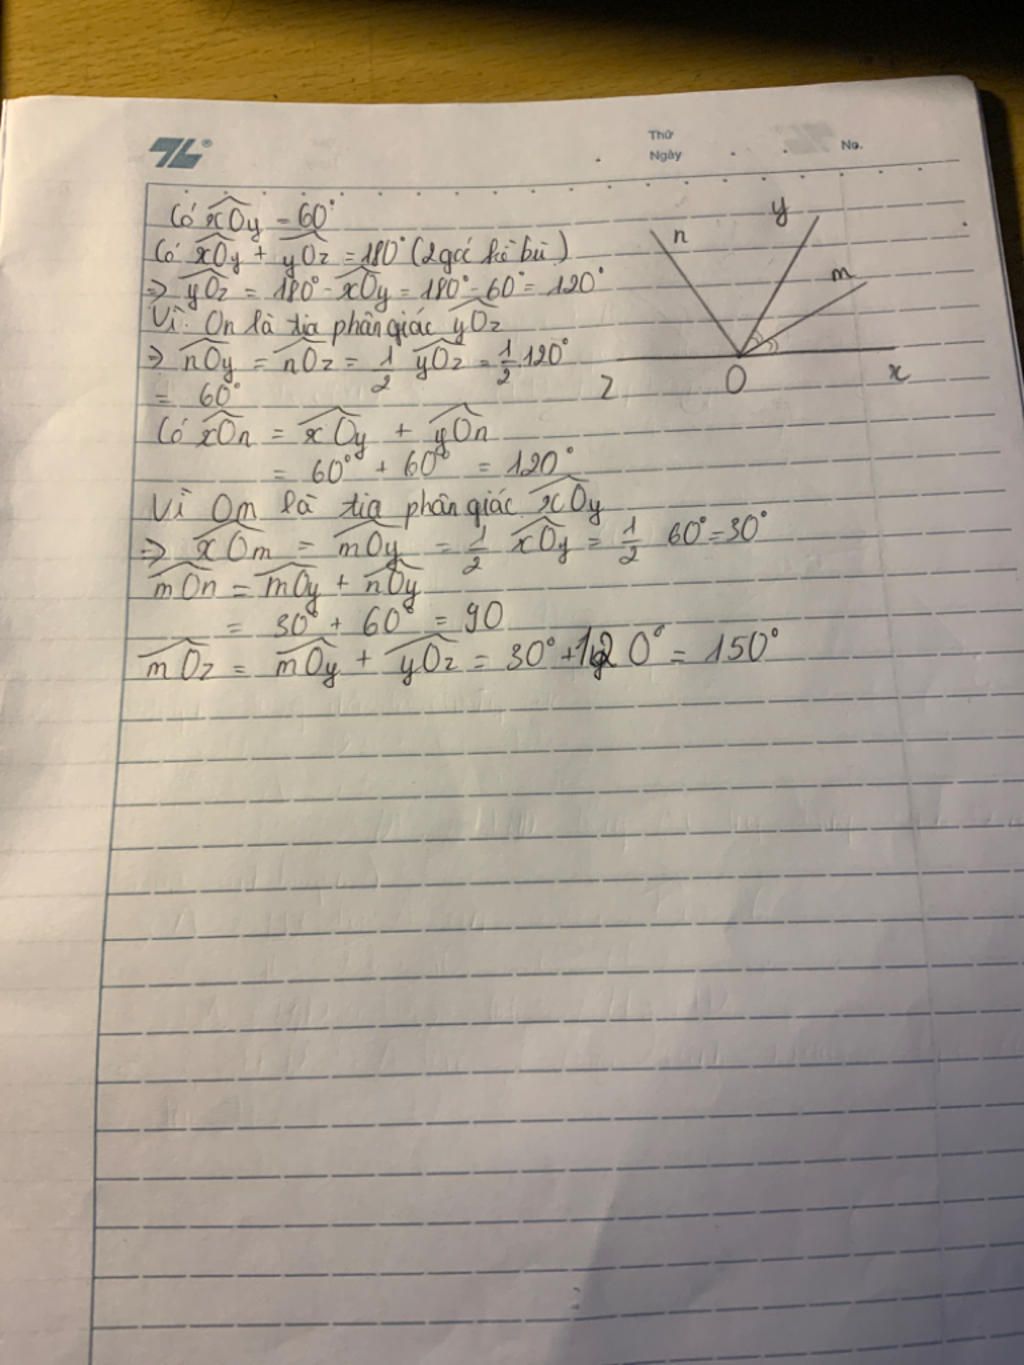 TL®
Thứ
Ngày
No.
Có x̂Oy = 60°
Có x̂Oy + ŷOz = 180° (2 góc kề bù)
=> ŷOz = 180° - x̂Oy = 180° - 60° = 120°
Vì On là tia phân giác ŷOz
=> n̂Oy = n̂Oz = 1/2 ŷOz = 1/2 . 120°
= 60°
Có x̂On = x̂Oy + ŷOn
= 60° + 60° = 120°
Vì Om là tia phân giác x̂Oy
=> x̂Om = m̂Oy = 1/2 x̂Oy = 1/2 60° = 30°
m̂On = m̂Oy + n̂Oy
= 30° + 60° = 90
m̂Oz = m̂Oy + ŷOz = 30° + 120° = 150°
n
y
m
z
O
x